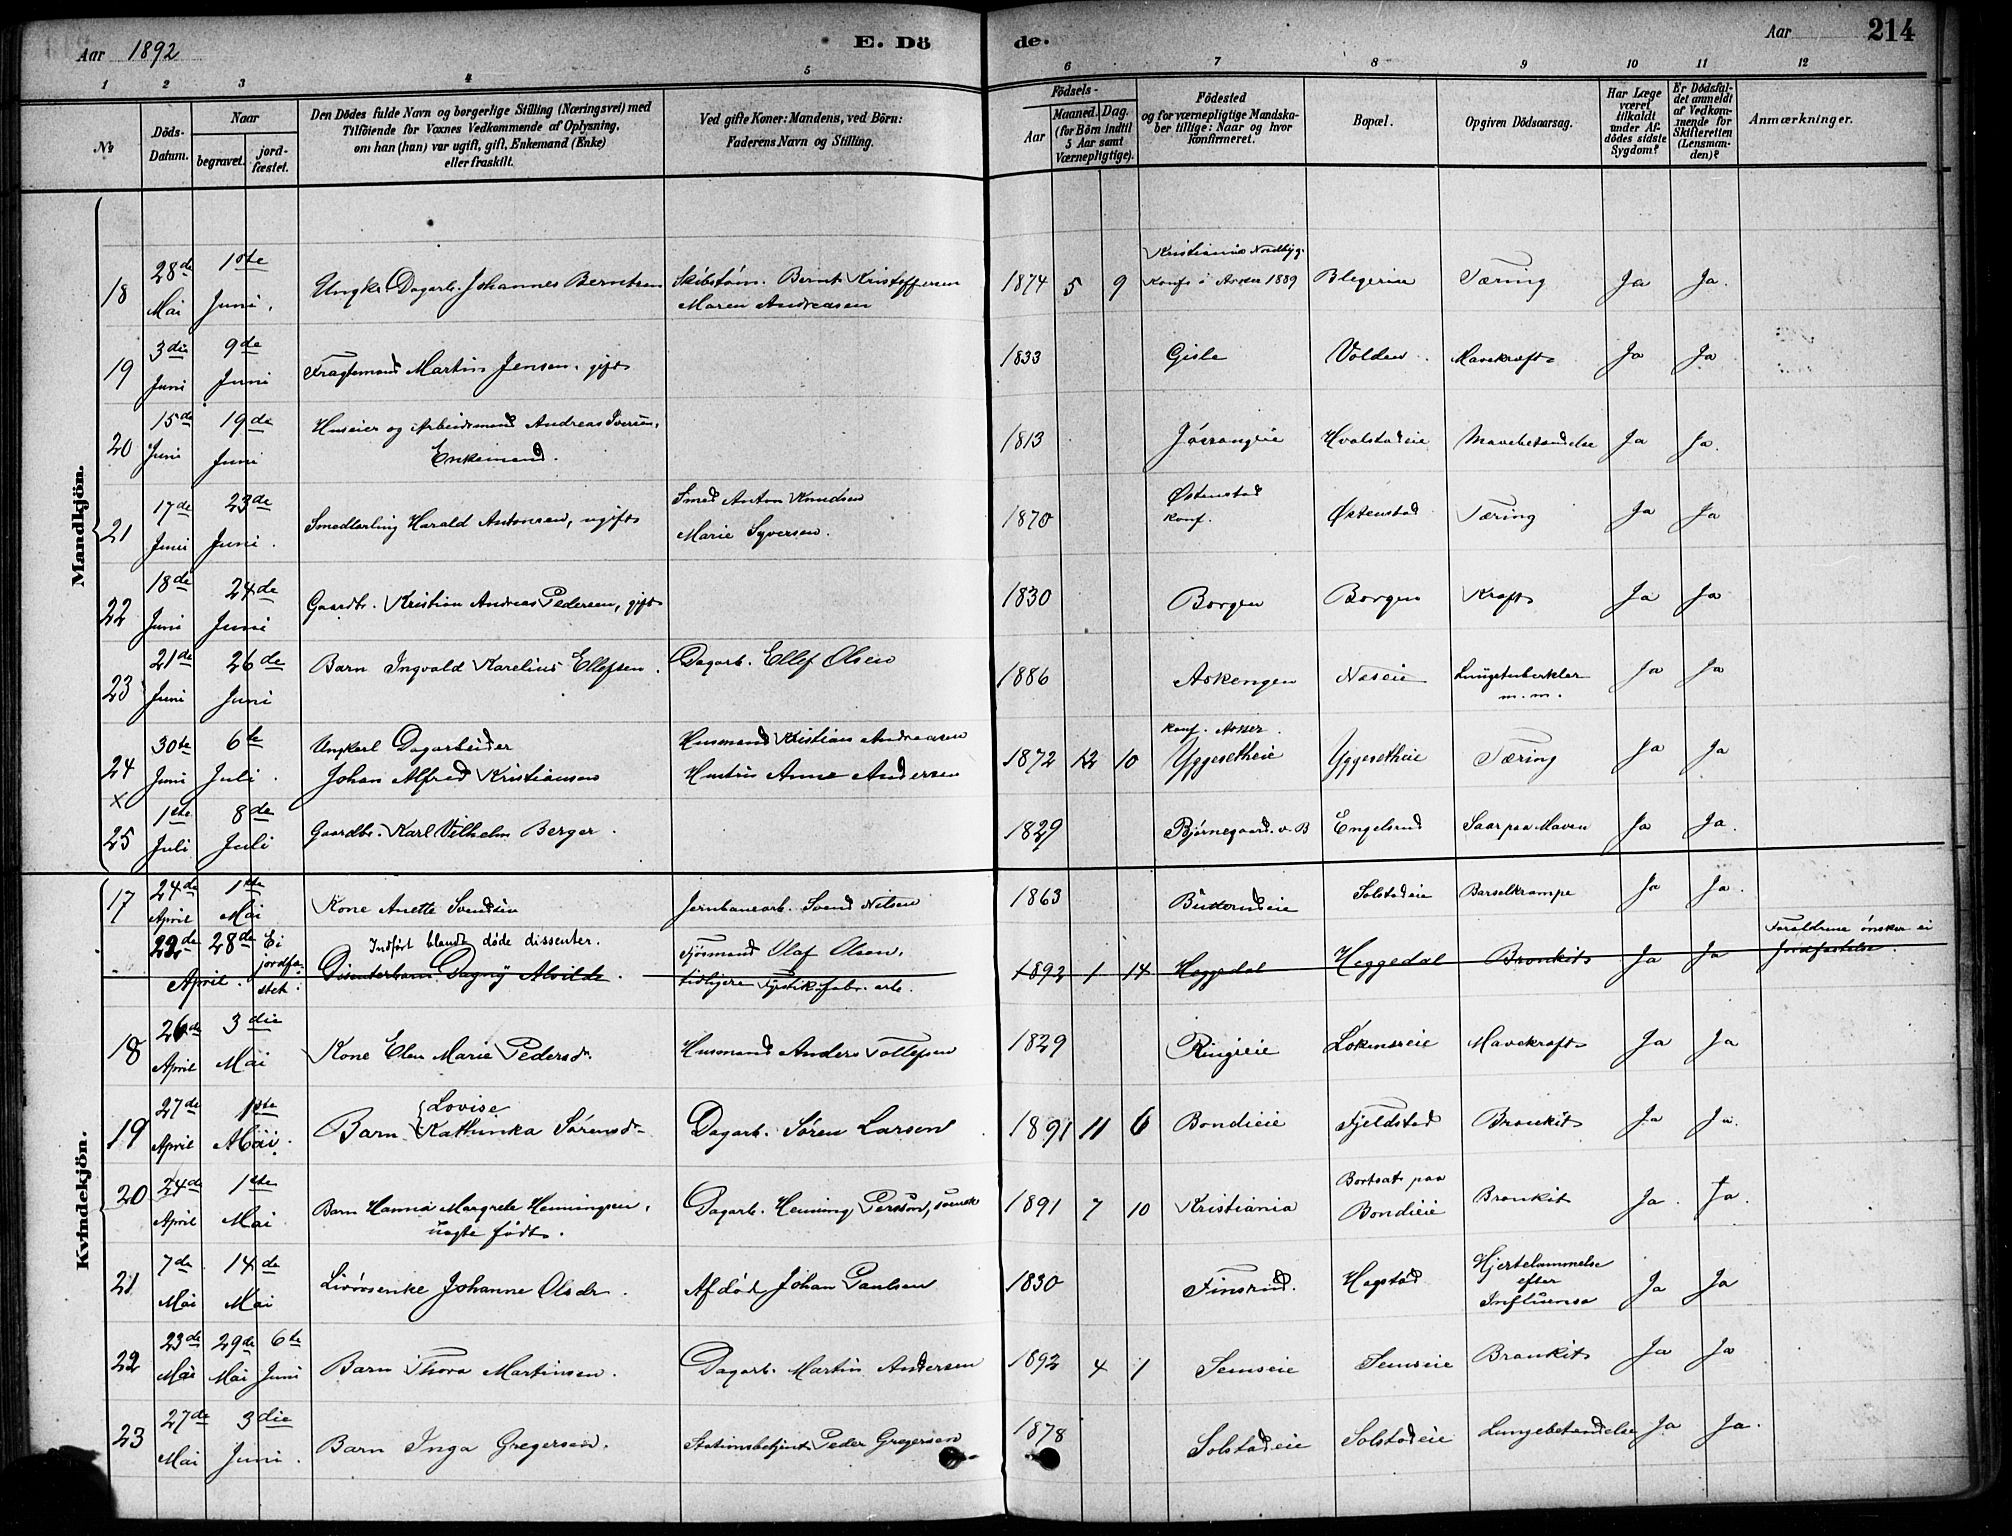 Aar 1892
E. Dö
de.
Aar
214
1 2 3 4 5 6 7 8 9 10 11 12
No
Döds-
Datum.
Naar
begravet.
jord-
fæstet.
Den Dödes fulde Navn og borgerlige Stilling (Næringsvei) med
Tilföiende for Voxnes Vedkommende af Oplysning,
om han (hun) var ugift, gift, Enkemand (Enke)
eller fraskilt.
Ved gifte Koner: Mandens, ved Börn:
Faderens Navn og Stilling.
Födsels-
Aar
Maaned. Dag.
(for Börn indtil
5 Aar samt
Værnepligtige).
Födested
og for værnepligtige Mandska-
ber tillige: Naar og hvor
konfirmeret.
Bopæl.
Opgiven Dödsaarsag.
Har Læge
været
tilkaldt
under Af-
dödes sidste
Sygdom?
Er Dödsfal-
det anmeldt
af Vedkom-
mende for
Skifteretten
(Lensman-
den)?
Anmærkninger.
Mandkjön.
18 28de Mai 1ste Juni. Ungk. Dagarb. Johannes Berntsen Skibstøm. Bernt Kristoffersen
Maren Andreasen
1874 5 9 Kristiania Nordbyg.
Konf. i Asker 1889 Blegerine Tæring Ja Ja.
19 3die Juni 9de Juni Fragtemand Martin Jensen. gift 1833 Gisle Volden. Mavekræft Ja Ja
20 15de Juni 19de Juni Huseier og Arbeidsmand Andreas Iversen,
Enkemand. 1813 Hvalstadeie Mavebetændelse Ja Ja.
21 17de Juni 23de Juni. Smedlærling Harald Antonsen, ugift Smed Anton Knudsen
Marie Syversen. 1870 Østenstad
Konf. Østenstad Tæring Ja Ja
22 18de Juni 24de Juni Gaardb. Kristian Andreas Pedersen, gift 1830 Borgen Borgen Kræft Ja Ja
23 21de Juni 26de Juni Barn Ingvald Karelius Ellefsen. Dagarb. Ellef Olsen 1886 Askengen Næseie Lungetuberkler
m. m. Ja Ja
24 30te Juni 6te Juli. Ungkarl Dagarbeider
Johan Alfred Kristiansen Husmand Kristian Andreasen
Hustru Anne Andersen 1872 12 10 Konf. Asker.
Yggesetheie Yggesetheie Tæring Ja Ja
x
25 1ste Juli 8de Juli Gaardb. Karl Vilhelm Berger. 1829 Bjørnegaard. v. B Engelsrud Saar paa Maven Ja Ja.
Kvindekjön.
17 24de April 1ste Mai Kone Anette Svendsen Jernbanearb. Svend Nilsen 1863 Solstadeie Barselkrampe Ja Ja.
22de April. 28de Ei
jordfæ-
stet. Indført blandt døde dissenter.
Dissenterbarn Dagny Alvilde. Olaf Olsen,
tidligere 1892 1 14 Heggedal Heggedal Bronkit Ja Ja Forældrene ønsker ei
Jordfæstelse.
18 26de April 3die Mai Kone Elen Marie Pedersd. Husmand Anders Tollefsen 1829 Ringieie Løkenseie Mavekræft Ja Ja
19 27de April 1ste Mai. Barn { Lovise
Kathinka Sørensd. Dagarb. Søren Larsen 1891 11 6 Bondieie Fjeldstad Bronkit Ja Ja.
20 24de April 1ste Mai Barn Hanna Margrete Henningsen,
uægte født. Dagarb. Henning Persson, svensk 1891 7 10 Kristiania Bortsat paa
Bondieie Bronkit Ja. Ja.
21 7de Mai 14de Mai Livørsenke Johanne Olsdr. Afdød Johan Paulsen 1830 Finsrud. Hogstad Hjertelammelse
efter
Influensa Ja Ja
22 23de Mai 29de Mai 6te Juni Barn Thora Martinsen. Dagarb. Martin Andersen 1892 4 1 Semseie Semseie Bronkit Ja Ja
23 27de Mai 3die Juni. Barn Inga Gregersen. Stationsbetjent Peder Gregersen 1878 Solstadeie Solstadeie Lungebetændelse Ja Ja.